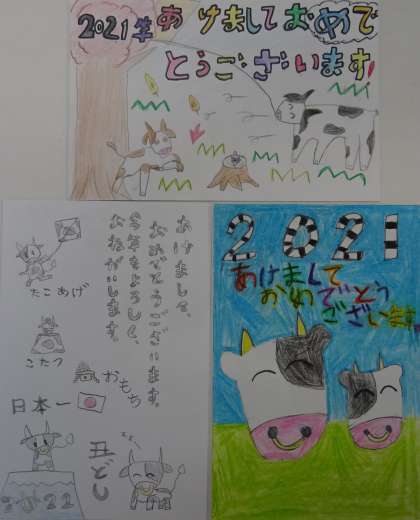 2021年 あけまして おめで
とうございます!
あけまして、
おめでとうございます。
今年もよろしく、
おねがいします。
たこあげ
こたつ
おもち
日本一
丑どし
2021
あけまして
おめでとう
ございます